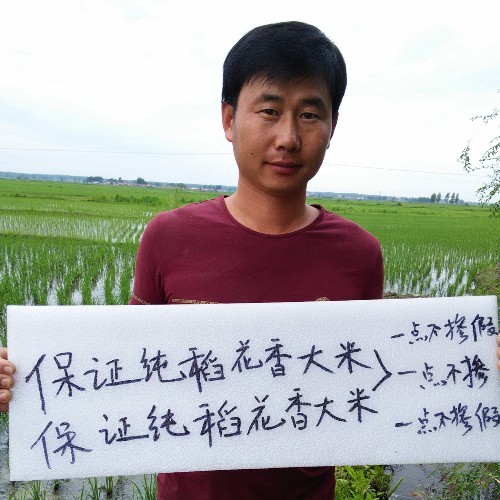 保证纯稻花香大米
保证纯稻花香大米
一点不掺假
一点不掺
一点不掺假